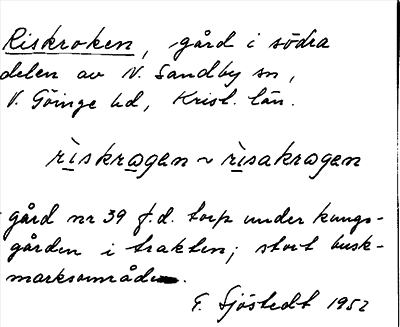 Riskroken, gård i södra
delen av N. Sandby sn,
V. Göinge hd, Krist. län.
riskrogen ~ risakrogen
gård nr 39 f.d. torp under kungs-
gården i trakten; stort busk-
marksområde.
F. Sjöstedt 1952